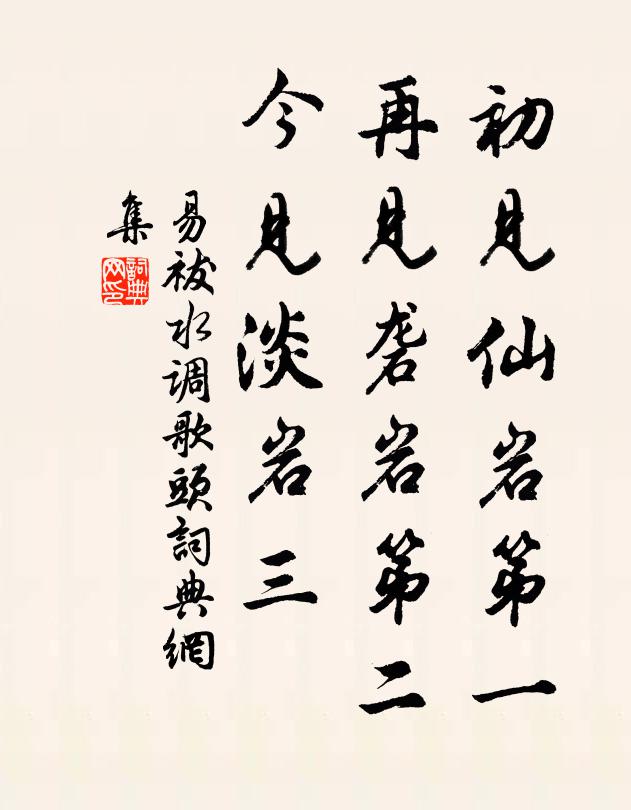 初见仙岩第一
再见砻岩第二
今见淡岩三
易祓水调歌頭詞典網
集
詞典
网印